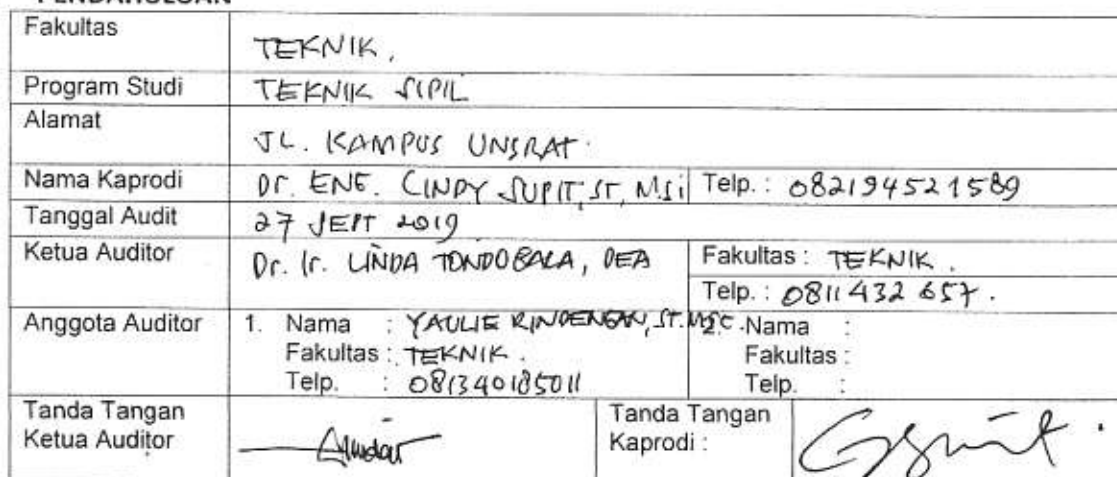 PENDAHULUAN
Fakultas TEKNIK.
Program Studi TEKNIK SIPIL
Alamat JL. KAMPUS UNSRAT.
Nama Kaprodi Dr. ENG. CINDY SUPIT, ST, MSi Telp. : 082194521589
Tanggal Audit 27 SEPT 2019
Ketua Auditor Dr. Ir. LINDA TONDOBALA, DEA Fakultas : TEKNIK.
Telp. : 0811432 657.
Anggota Auditor 1. Nama : YAULIE RINDENGAN, ST. MSC. 2. Nama :
Fakultas : TEKNIK. Fakultas :
Telp. : 081340185011 Telp. :
Tanda Tangan Tanda Tangan
Ketua Auditor Kaprodi :